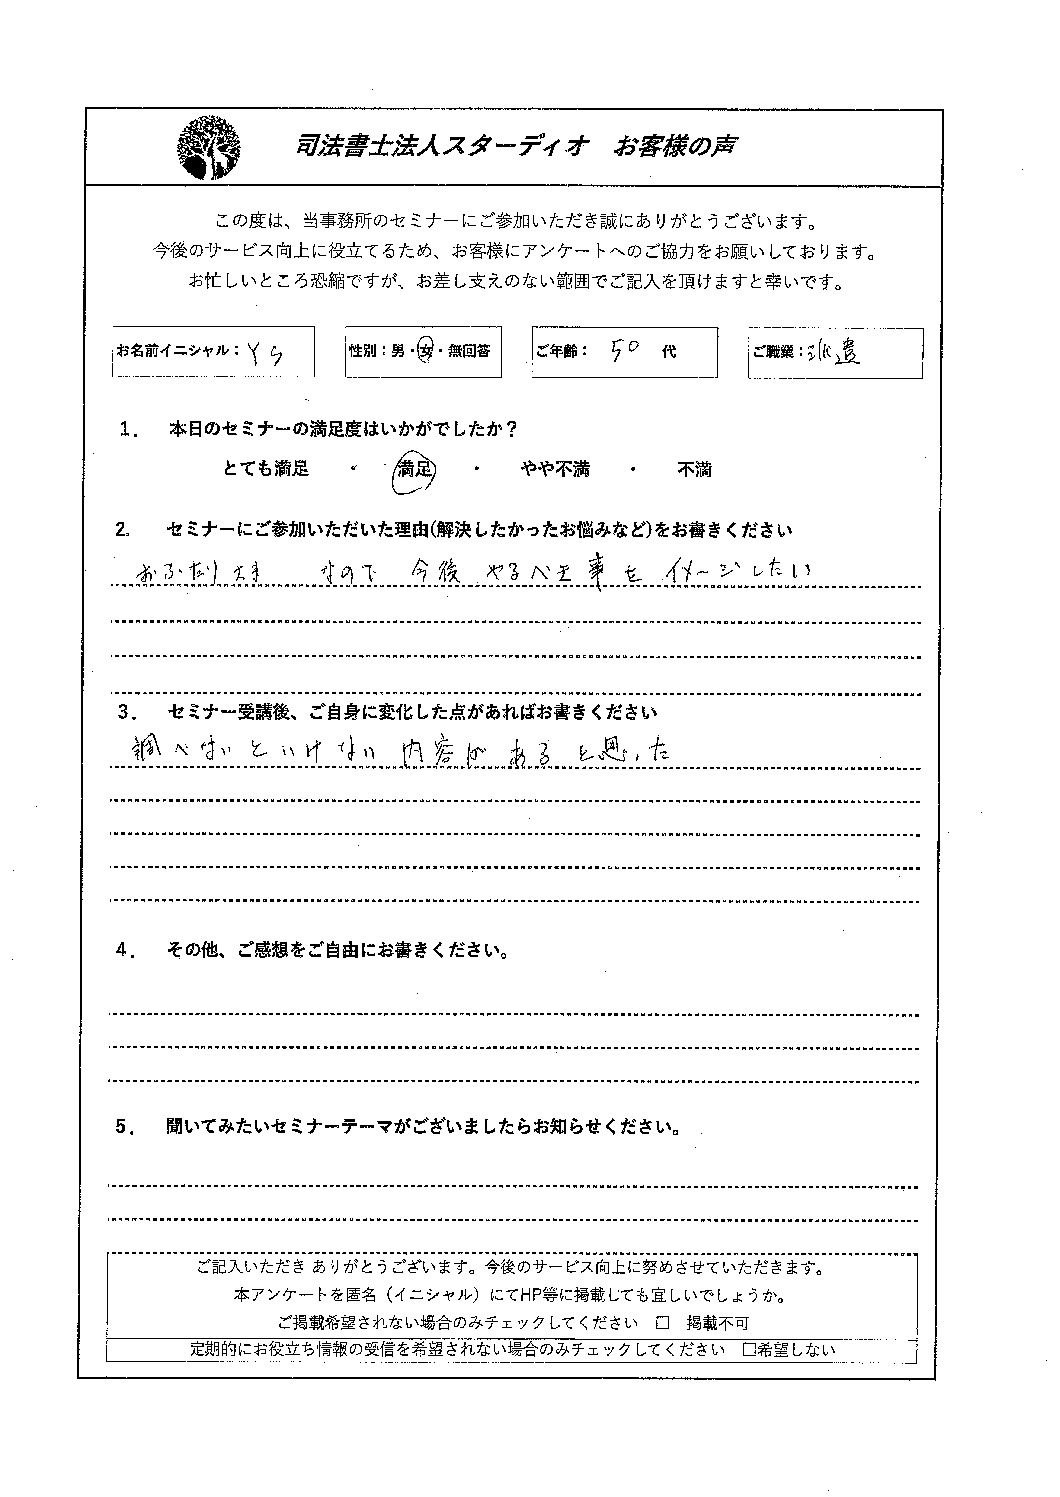 司法書士法人スターディオ　お客様の声
この度は、当事務所のセミナーにご参加いただき誠にありがとうございます。
今後のサービス向上に役立てるため、お客様にアンケートへのご協力をお願いしております。
お忙しいところ恐縮ですが、お差し支えのない範囲でご記入を頂けますと幸いです。
お名前イニシャル：YS　性別：男・女・無回答　ご年齢：50代　ご職業：派遣
1.　本日のセミナーの満足度はいかがでしたか？
とても満足　・　満足　・　やや不満　・　不満
2.　セミナーにご参加いただいた理由(解決したかったお悩みなど)をお書きください
おふたりさま　なので 今後 やるべき事を イメージしたい
3.　セミナー受講後、ご自身に変化した点があればお書きください
調べないといけない 内容が あると思った
4.　その他、ご感想をご自由にお書きください。
5.　聞いてみたいセミナーテーマがございましたらお知らせください。
ご記入いただき ありがとうございます。今後のサービス向上に努めさせていただきます。
本アンケートを匿名（イニシャル）にてHP等に掲載しても宜しいでしょうか。
ご掲載希望されない場合のみチェックしてください　□　掲載不可
定期的にお役立ち情報の受信を希望されない場合のみチェックしてください　□希望しない